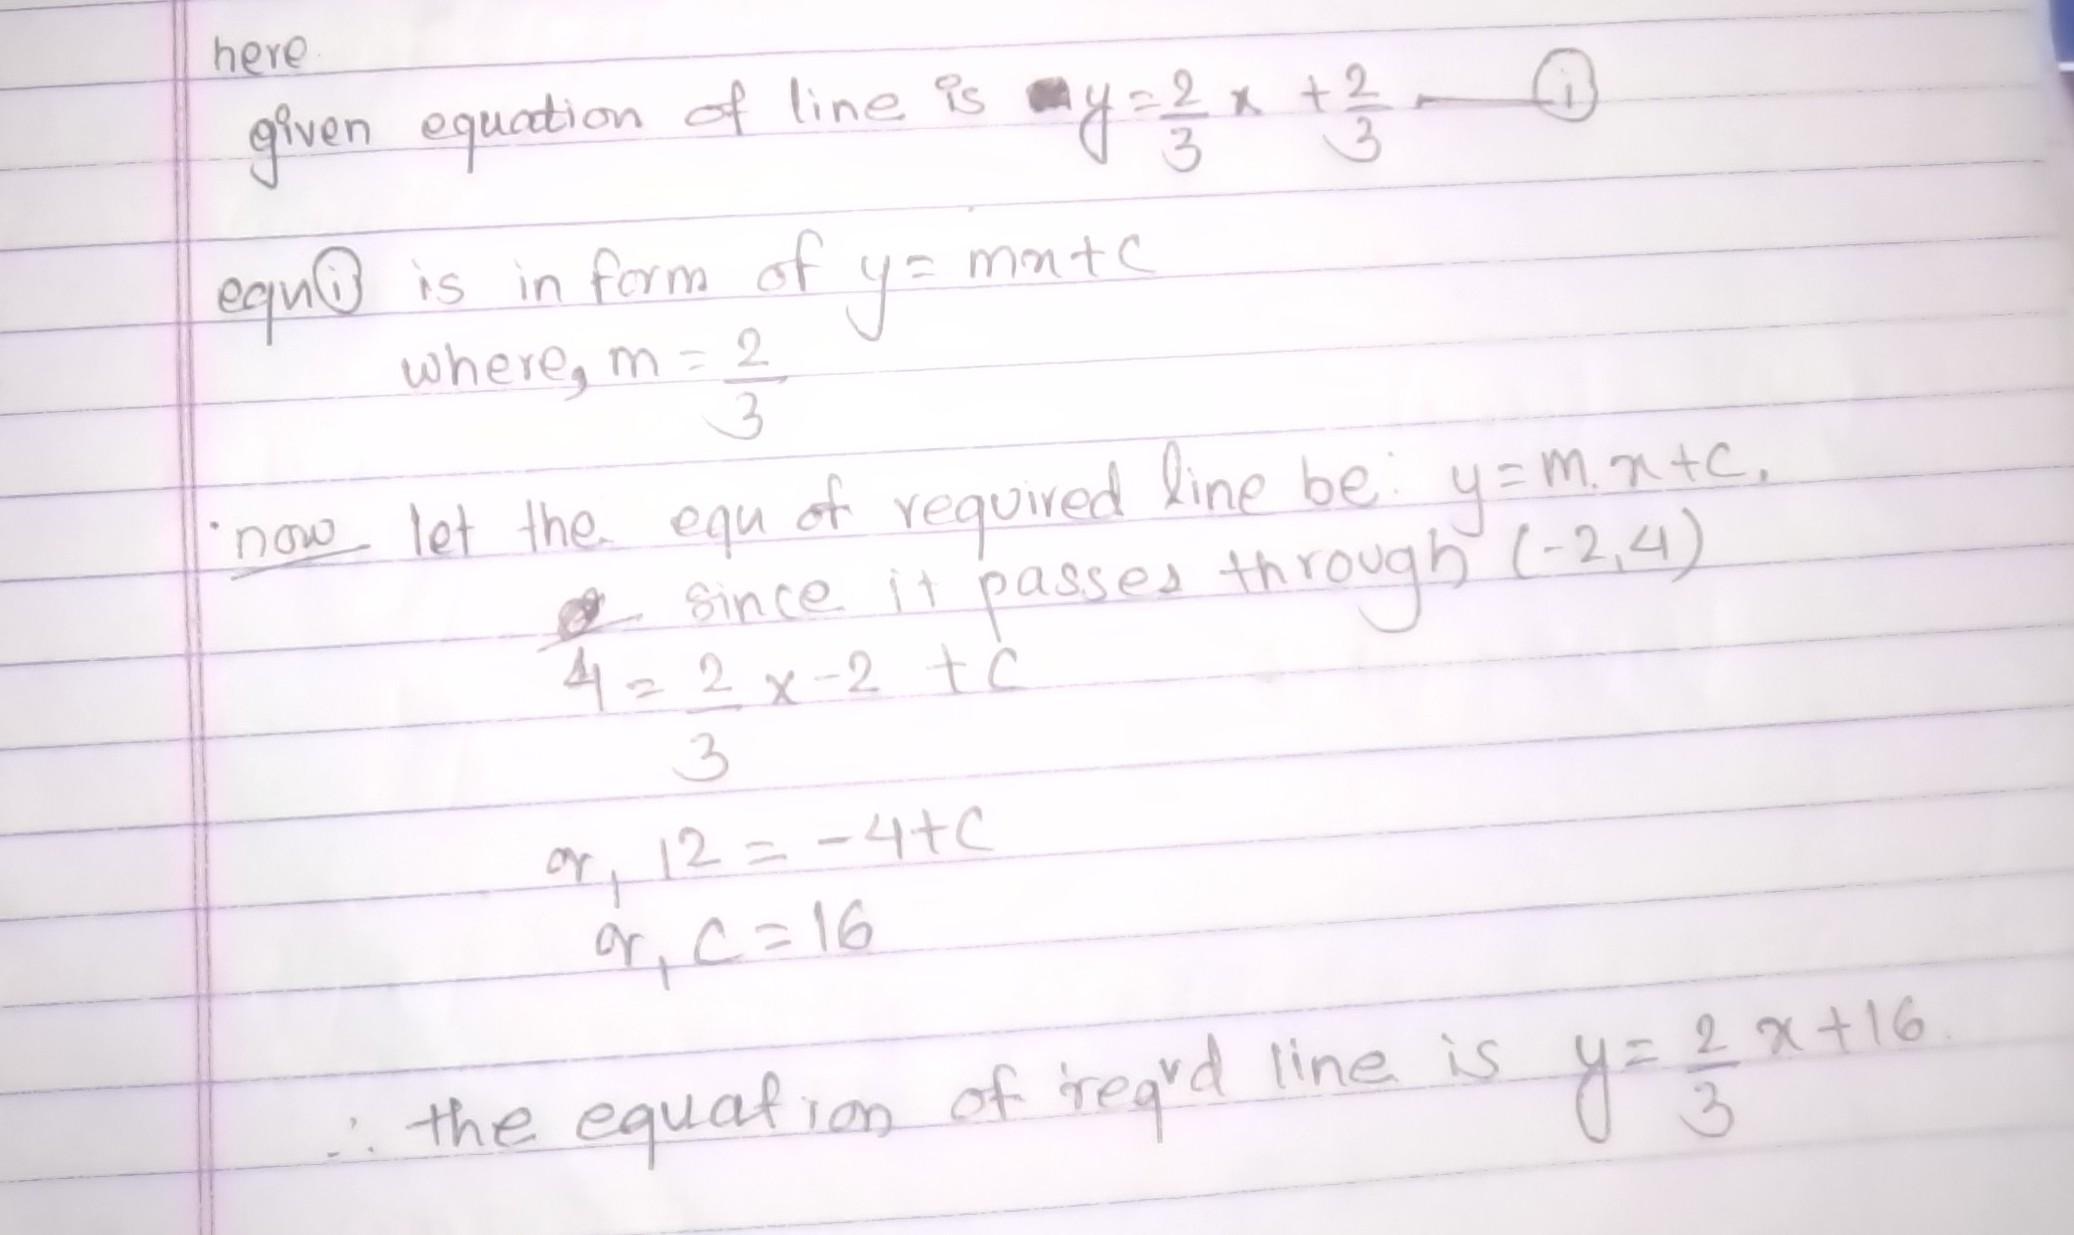 here
given equation of line is y = 2/3 x + 2/3 — (i)
equn (i) is in form of y = mx + c
where, m = 2/3
now let the equ of required line be: y = m.x + c.
since it passes through (-2, 4)
4 = 2/3 x -2 + c
or, 12 = -4 + c
or, c = 16
∴ the equation of req'd line is y = 2/3 x + 16